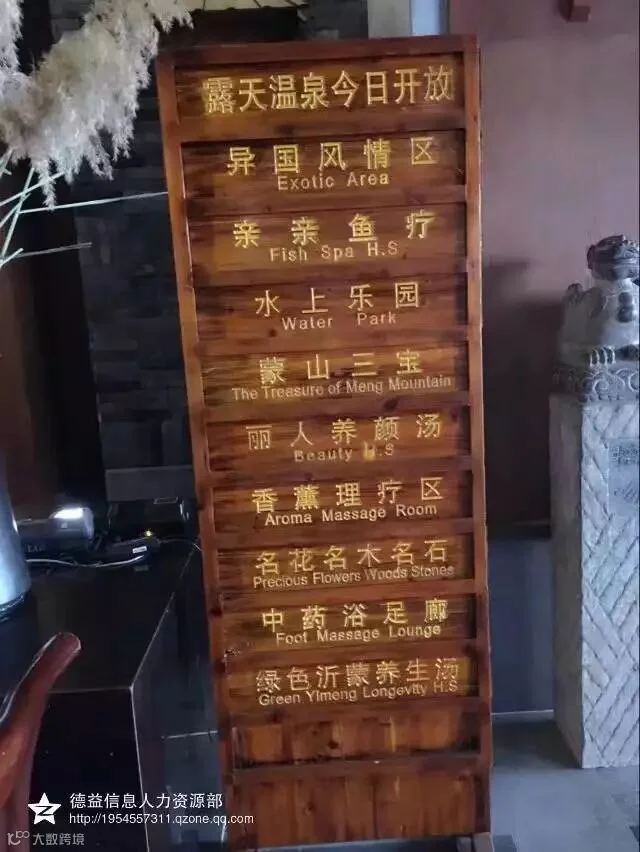 露天温泉今日开放
异国风情区
Exotic Area
亲亲鱼疗
Fish Spa H.S
水上乐园
Water Park
蒙山三宝
The Treasure of Meng Mountain
丽人养颜汤
Beauty H.S
香薰理疗区
Aroma Massage Room
名花名木名石
Precious Flowers Woods Stones
中药浴足廊
Foot Massage Lounge
绿色沂蒙养生汤
Green Yimeng Longevity H.S
德益信息人力资源部
http://1954557311.qzone.qq.com
大数跨境